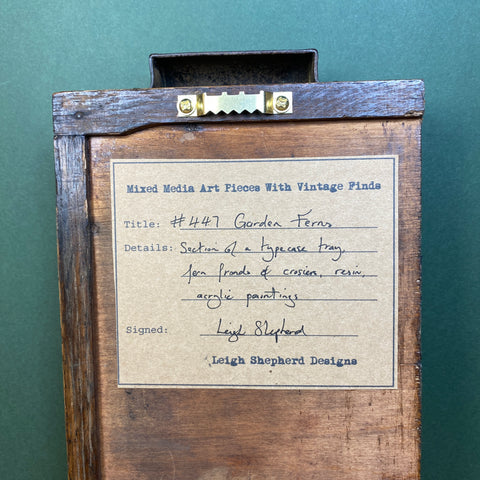 Mixed Media Art Pieces With Vintage Finds
Title: #447 Garden Ferns
Details: Section of a typecase tray,
fern fronds & crosier, resin,
acrylic paintings
Signed: Leigh Shepherd
Leigh Shepherd Designs